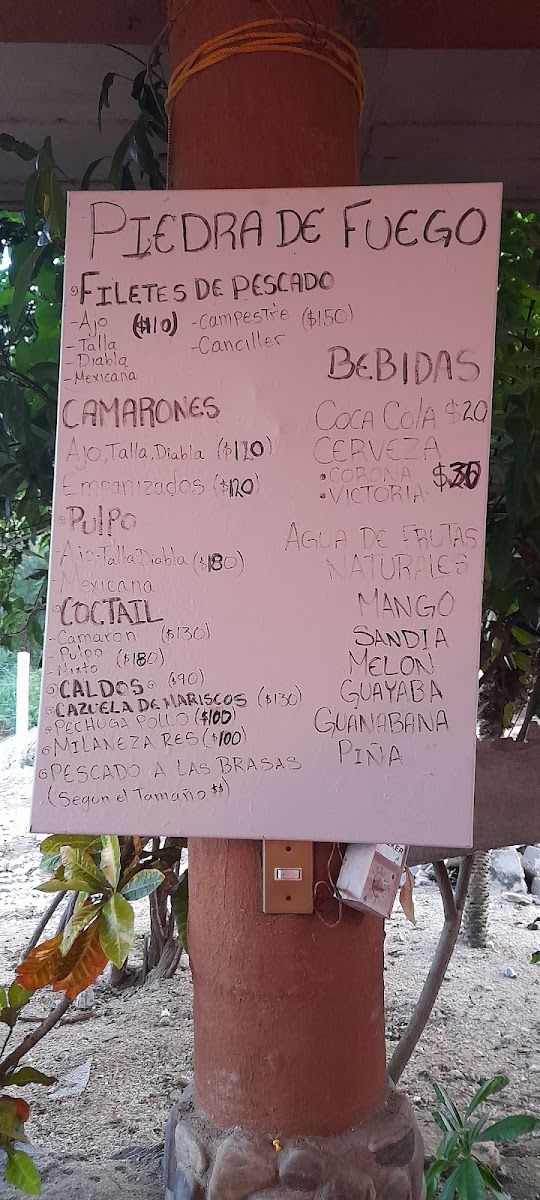 PIEDRA DE FUEGO
FILETES DE PESCADO
-Ajo ($110) -Campestre ($150)
-Talla -Canciller
-Diabla
-Mexicana
CAMARONES
Ajo, Talla, Diabla ($120)
Empanizados ($120)
Pulpo
-Ajo-Talla, Diabla ($180)
-Mexicana
COCTAIL
-Camaron ($130)
-Pulpo
-Mixto ($180)
CALDOS ($90)
CAZUELA DE MARISCOS ($130)
PECHUGA POLLO ($100)
MILANEZA RES ($100)
PESCADO A LAS BRASAS
(Segun el Tamaño $$)
BEBIDAS
COCA COLA $20
CERVEZA
CORONA $30
VICTORIA
AGUA DE FRUTAS
NATURALES
MANGO
SANDIA
MELON
GUAYABA
GUANABANA
PIÑA